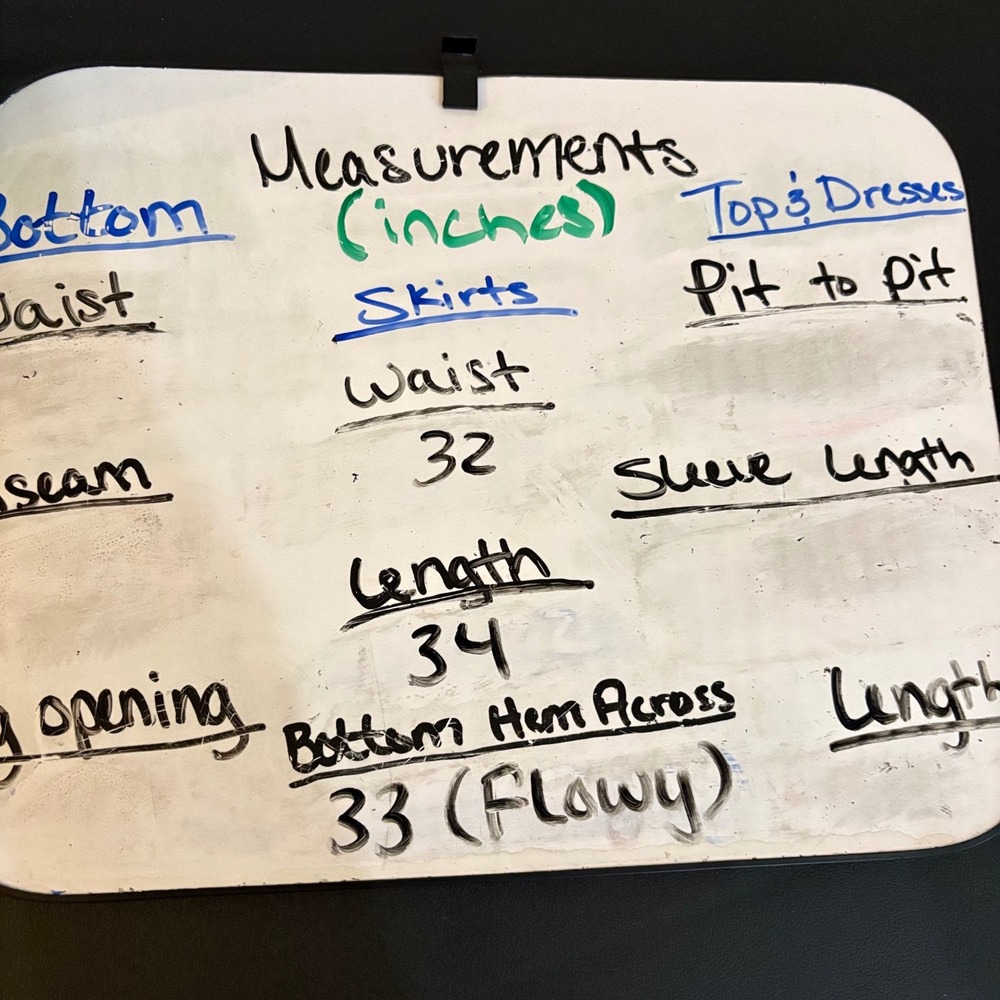 Measurements
(inches)
Bottom
Waist
seam
opening
Skirts
Waist
32
Length
34
Bottom Hem Across
33 (Flowy)
Top & Dresses
Pit to Pit
Sleeve Length
Length